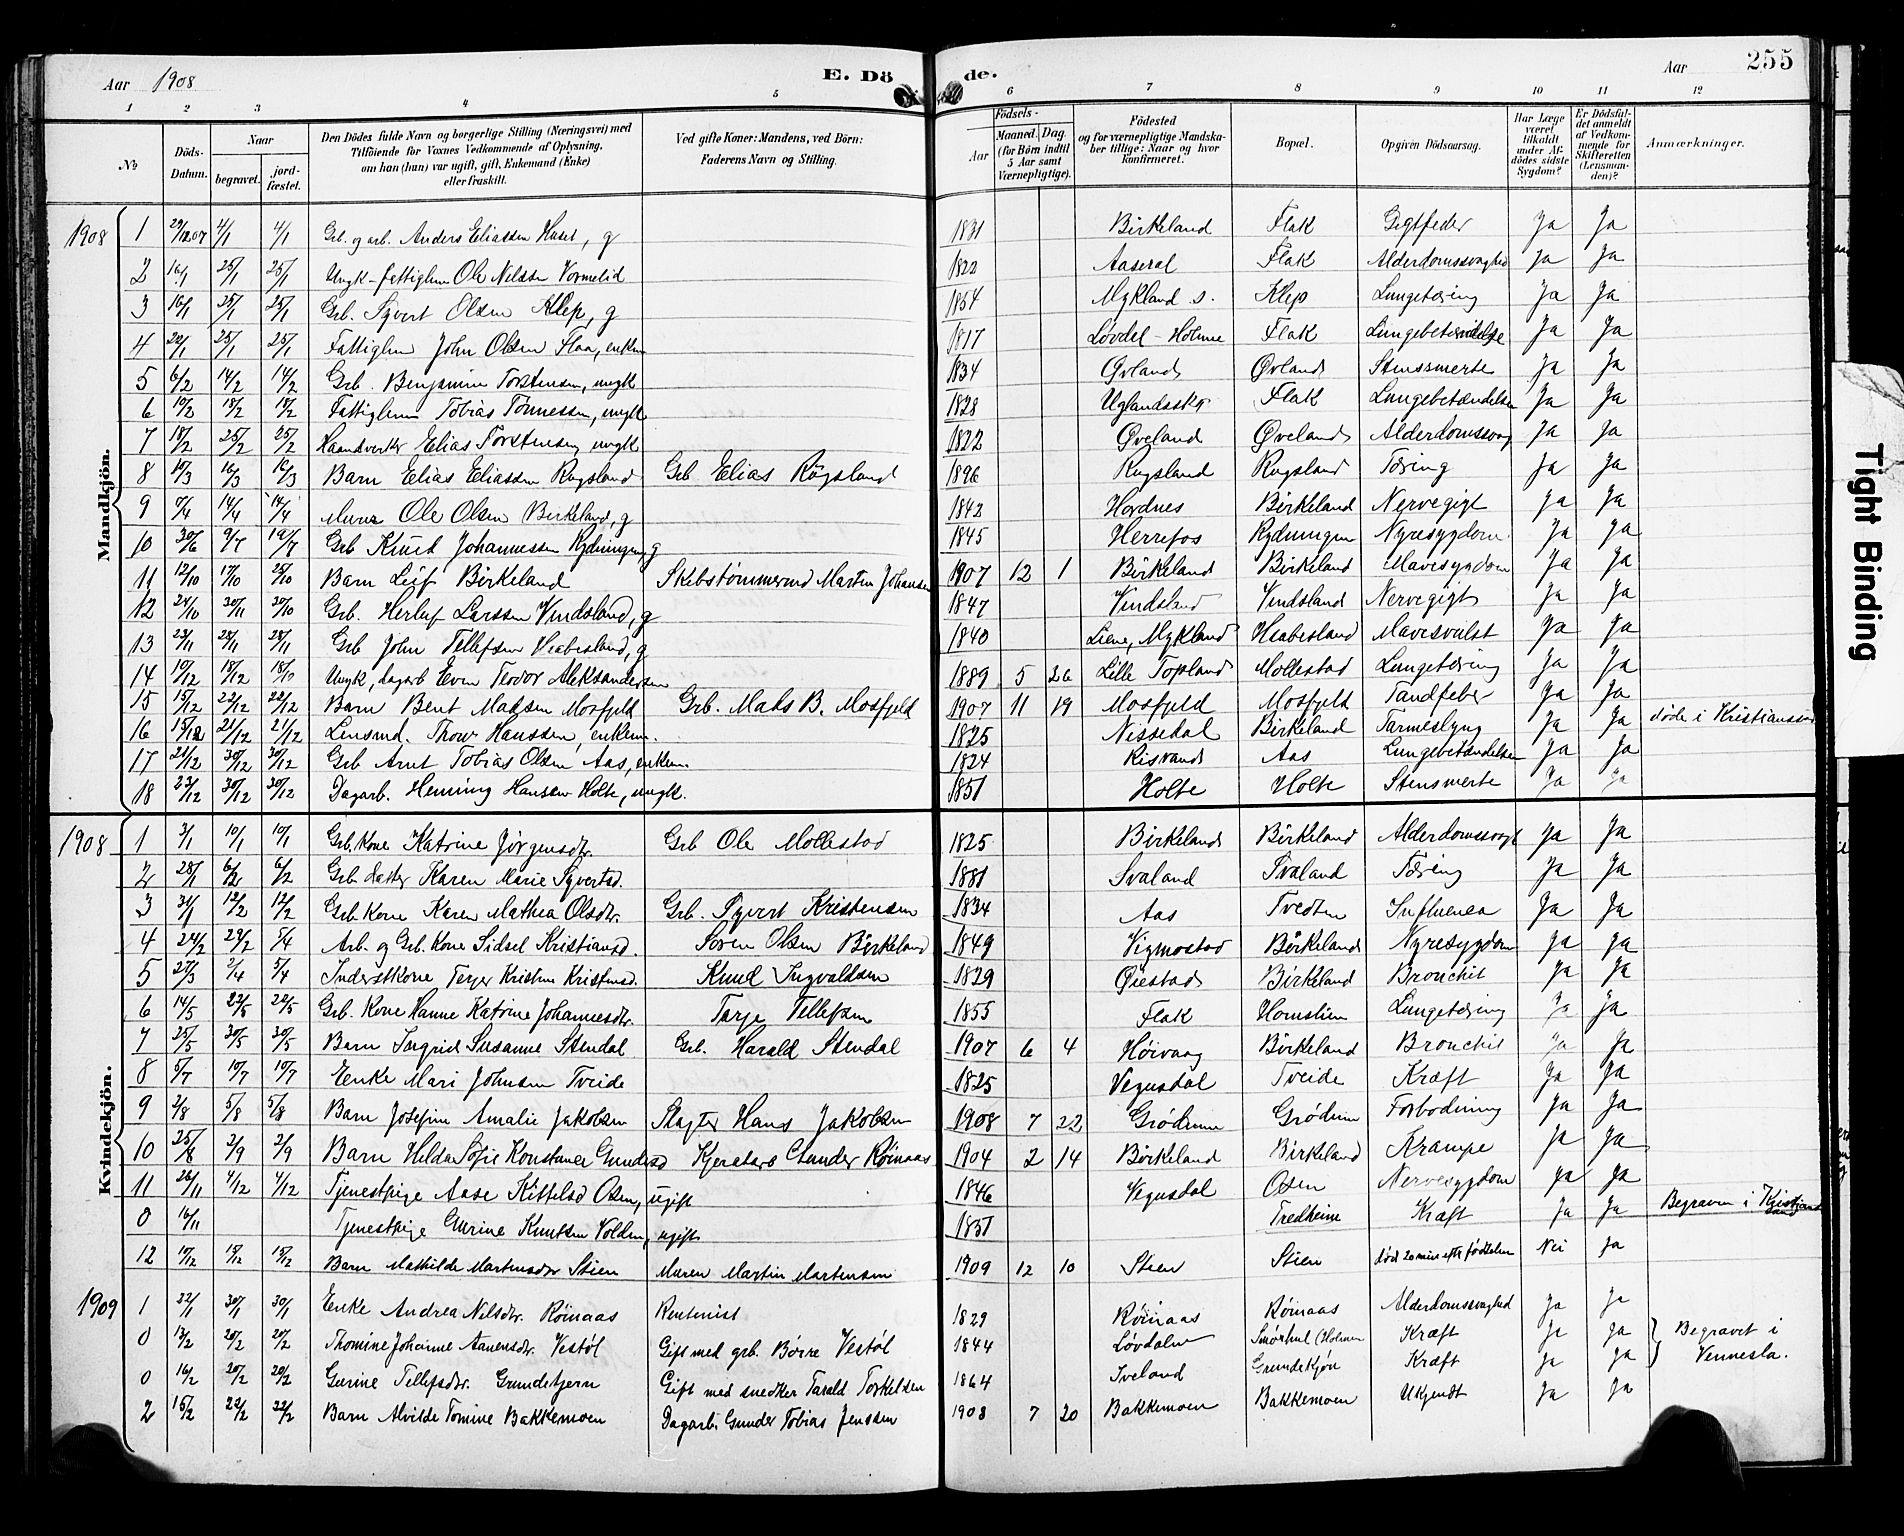 Aar 1908 E. Dö de. Aar 255
1 2 3 4 5 6 7 8 9 10 11 12
No Döds-Datum. Naar begravet. jord-fæstet. Den Dödes fulde Navn og borgerlige Stilling (Næringsvei) med Tilföiende for Voxnes Vedkommende af Oplysning, om han (hun) var ugift, gift, Enkemand (Enke) eller fraskilt. Ved gifte Koner: Mandens, ved Börn: Faderens Navn og Stilling. Födsels- Aar Maaned. Dag. (for Börn indtil 5 Aar samt Værnepligtige). Födested og for værnepligtige Mandskaber tillige: Naar og hvor konfirmeret. Bopæl. Opgiven Dödsaarsag. Har Læge været tilkaldt under Afdödes sidste Sygdom? Er Dödsfaldet anmeldt af Vedkommende for Skifteretten (Lensmanden)? Anmærkninger.
Mandkjön.
1908 1 29/12 07 4/1 4/1 Grb. og arb. Anders Eliassen Huset, g 1831 Birkeland Flak Gigtfeber Ja Ja
2 16/1 25/1 25/1 Ungk-fattiglem Ole Nilssen Vormelid 1822 Aaseral Flak Alderdomssvaghed Ja Ja
3 16/1 25/1 25/1 Grb. Syvert Olsen Klep, g 1854 Mykland s. Klep Lungetæring Ja Ja
4 22/1 25/1 25/1 Fattiglem John Olsen Flaa, enkem 1817 Løvdal-Holme Flak Lungebetændelse Ja Ja
5 6/2 14/2 14/2 Grb. Benjamin Torstensen, ungk 1834 Øvland Øvland Stenssmerte Ja Ja
6 10/2 18/2 18/2 Fattiglem Tobias Tønnessen, ungk 1828 Uglandssk Flak Lungebetændelsen Ja Ja
7 18/2 25/2 25/2 Haandverker Elias Torstensen, ungk 1822 Øveland Øveland Alderdomssvag Ja Ja
8 10/3 16/3 16/3 Barn Elias Eliassen Rugsland Grb Elias Rögsland 1896 Rugsland Rugsland Tæring Ja Ja
9 7/4 14/4 14/4 Murer Ole Olsen Birkeland, g 1842 Hordnes Birkeland Nervegigt Ja Ja
10 30/6 9/7 19/7 Grb Knut Johannessen Rydningen, g 1845 Herrefos Rydningen Nyresygdom Ja Ja
11 12/10 17/10 25/10 Barn Leif Birkeland Skibstømmermd Martin Johansen 1907 12 1 Birkeland Birkeland Mavesygdom Ja Ja
12 24/10 30/11 30/10 Grb. Herlof Larssen Vindsland, g 1847 Vindsland Vindsland Nervegigt Ja Ja
13 23/11 28/11 28/11 Grb John Tellefsen Heabesland, g 1840 Liene, Mykland Heabesland Mavesvulst Ja Ja
14 10/12 18/12 18/12 Ungk, dagarb Even Teodor Aleksandersen 1889 5 26 Lille Topland Mollestad Lungetæring Ja Ja
15 15/12 22/12 22/12 Barn Bent Madsen Mosfjeld Grb. Mads B. Mosfjeld 1907 11 19 Mosfjeld Mosfjeld Tandfeber Ja Ja
16 15/12 21/12 21/12 Lensmd. Thow Hanssen, enkem. 1825 Nissedal Birkeland Tarmeslyng Ja Ja døde i Kristianssand
17 21/12 30/12 30/12 Grb Arnt Tobias Olsen Aas, enkem 1824 Risvand Aas Lungebetændelsen Ja Ja
18 23/12 30/12 30/12 Dagarb. Henning Hansen Holte, ungk. 1851 Holte Holte Stensmerte Ja Ja
Kvindekjön.
1908 1 3/1 10/1 10/1 Grb. Kone Katrine Jörgensdtr. Grb Ole Mollestad 1825 Birkeland Birkeland Alderdomssvagt Ja Ja
2 28/1 6/2 6/2 Grb. datter Karen Marie Syvertsd. 1881 Svaland Svaland Tæring Ja Ja
3 31/1 12/2 12/2 Grb. Kone Karen Mathea Olsdtr. Grb. Syvert Kristensen 1834 Aas Tvedten Influensa Ja Ja
4 24/2 29/2 5/4 Arb. og Grb. Kone Sidsel Kristiansd. Soren Olsen Birkeland 1849 Vigmostad Birkeland Nyresygdom Ja Ja
5 27/3 2/4 5/4 Inderstkone Terjer Kristin Kristensd. Knud Ingvaldsen 1829 Øiestad Birkeland Bronchit Ja Ja
6 14/5 22/5 22/5 Grb. Kone Hanne Katrine Johannesdtr. Tarje Tellefsen 1855 Flak Homslien Lungetæring Ja Ja
7 25/5 30/5 30/5 Barn Ingrid Susanne Stendal Grb. Harald Stendal 1907 6 4 Høivaag Birkeland Bronchit Ja Ja
8 5/7 10/7 10/7 Enke Mari Johnsen Tveide 1825 Vegusdal Tveide Kræft Ja Ja
9 2/8 5/8 5/8 Barn Josefine Amalie Jakobsen Slagter Hans Jakobsen 1908 7 22 Grødum Grødum Forbødning Ja Ja
10 25/8 2/9 2/9 Barn Hilda Sofie Konstance Gundersd Gunder Röinaas 1904 2 14 Birkeland Birkeland Krampe Ja Ja
11 26/11 4/12 4/12 Tjenestpige Aase Kittelsd Osen, ugift 1846 Vegusdal Osen Nervesygdom Ja Ja
0 16/11 Tjenestpige Gurine Knutsen Volden, ugift 1851 Tredheime Kræft Ja Ja Begraven i Kristiansand
12 10/12 15/12 15/12 Barn Mathilde Martensdtr Stien Murer Martin Martensen 1909 12 10 Stien Stien død 20 min efter fødselen Nei Ja
1909 1 22/1 30/1 30/1 Enke Andrea Nilsdtr. Röinaas Rentenist 1829 Röinaas Röinaas Alderdomssvaghed Ja Ja
0 13/2 20/2 20/2 Thomine Johanne Aanensdtr. Vestöl Gift med grb. Børre Vestöl 1844 Løvdalen Smørhul (Holmen Kræft Ja Ja } Begravet i
0 16/2 20/2 20/2 Gurine Tellefsdtr. Grundetjern Gift med snedker Tarald Torkelsen 1864 Iveland Grundekjön Kræft Ja Ja Vennesla.
2 15/2 22/2 22/2 Barn Alvilde Tomine Bakkemoen Dagarb. Gunder Tobias Jenssen 1908 7 20 Bakkemoen Bakkemoen Ukjendt Ja Ja
Tight Binding